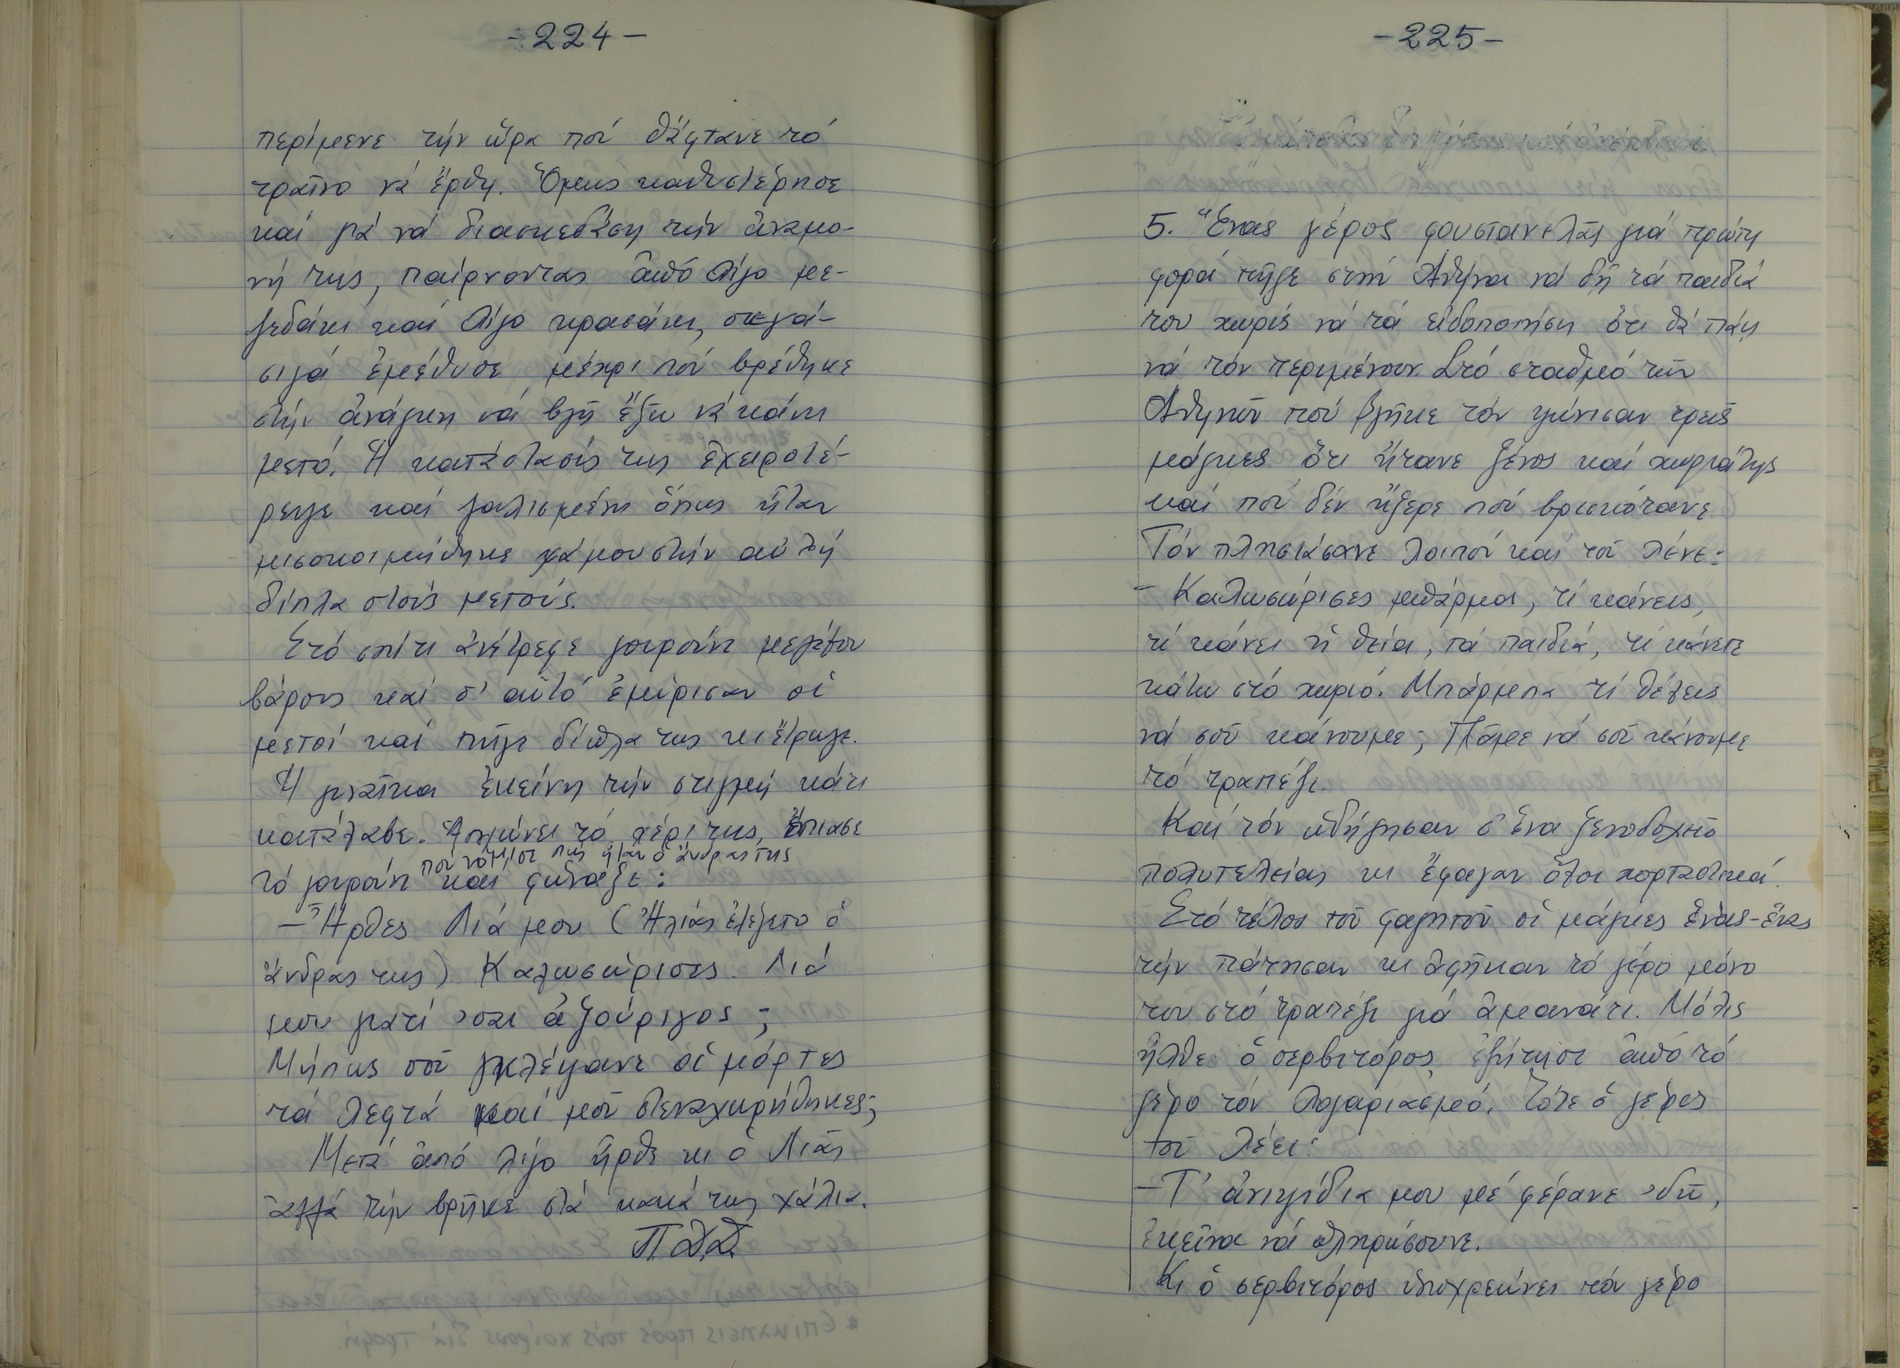 -224-
περίμενε τήν ὥρα πού θἄφτανε τό
τραῖνο νά ἔρθη. Ὅμως καθυστέρησε
καί γιά νά διασκεδάση τήν ἀναμο-
νή της, παίρνοντας ἀπό λίγο με-
ζεδάκι καί λίγο κρασάκι, σιγά-
σιγά ἐμέθυσε μέχρι πού βρέθηκε
στήν ἀνάγκη νά βγῆ ἔξω νά κάνη
μετό. Ἡ κατάστασίς της ἐχειροτέ-
ρεψε καί ζαλισμένη ὅπως ἦταν
μισοκοιμήθηκε χάμου στήν αὐλή
δίπλα στούς μετούς.
Στό σπίτι ἀνέτρεφε γουρούνι μεγάλου
βάρους καί σ' αὐτό ἐμύρισαν οἱ
μετοί καί πῆγε δίπλα της κι ἔτρωγε.
Ἡ γυναῖκα ἐκείνη τήν στιγμή κάτι
κατάλαβε. Ἁπλώνει τό χέρι της, ἔπιασε
πού νόμισε πώς ἦταν ὁ ἄνδρας της
τό γουρούνι καί φώναξε:
- Ἦρθες Λιά μου (Ἠλίας ἐλέγετο ὁ
ἄνδρας της) Καλωσώρισες. Λιά
μου γιατί 'σαι ἀξούριγος;
Μήπως σοῦ κλέψανε οἱ μόρτες
τά λεφτά καί μοῦ στεναχωρήθηκες;
Μετά ἀπό λίγο ἦρθε κι ὁ Λιᾶς
ἀλλά τήν βρῆκε στά κακά της χάλια.
-225-
5. Ἕνας γέρος φουστανελᾶς γιά πρώτη
φορά πῆγε στήν Ἀθήνα νά δῆ τά παιδιά
του χωρίς νά τά εἰδοποιήση ὅτι θά πάη
νά τόν περιμένουν. Στό σταθμό τῶν
Ἀθηνῶν πού βγῆκε τόν γνώρισαν τρεῖς
μάγκες ὅτι ἤτανε ξένος καί χωριάτης
καί πού δέν ἤξερε πού βρισκότανε
Τόν πλησιάσανε λοιπόν καί τοῦ λένε:
- Καλωσώρισες μπάρμπα, τί κάνεις,
τί κάνει ἡ θεία, τά παιδιά, τί κάνετε
κάτω στό χωριό. Μπάρμπα τί θέλεις
νά σοῦ κάνουμε; Πᾶμε νά σοῦ κάνουμε
τό τραπέζι.
Καί τόν ὡδήγησαν σ' ἕνα ξενοδοχεῖο
πολυτελείας κι ἔφαγαν ὅλοι χορταστικά.
Στό τέλος τοῦ φαγητοῦ οἱ μάγκες ἕνας-ἕνας
τήν πάτησαν κι ἀφῆκαν τό γέρο μόνο
του στό τραπέζι γιά ἀμανάτι. Μόλις
ἦλθε ὁ σερβιτόρος, ἐζήτησε ἀπό τό
γέρο τόν λογαριασμό. Τότε ὁ γέρος
τοῦ λέει:
- Τ' ἀνιψίδια μου μέ φέρανε 'δῶ,
ἐκεῖνα νά πληρώσουνε.
Κι ὁ σερβιτόρος ὑποχρεώνει τόν γέρο